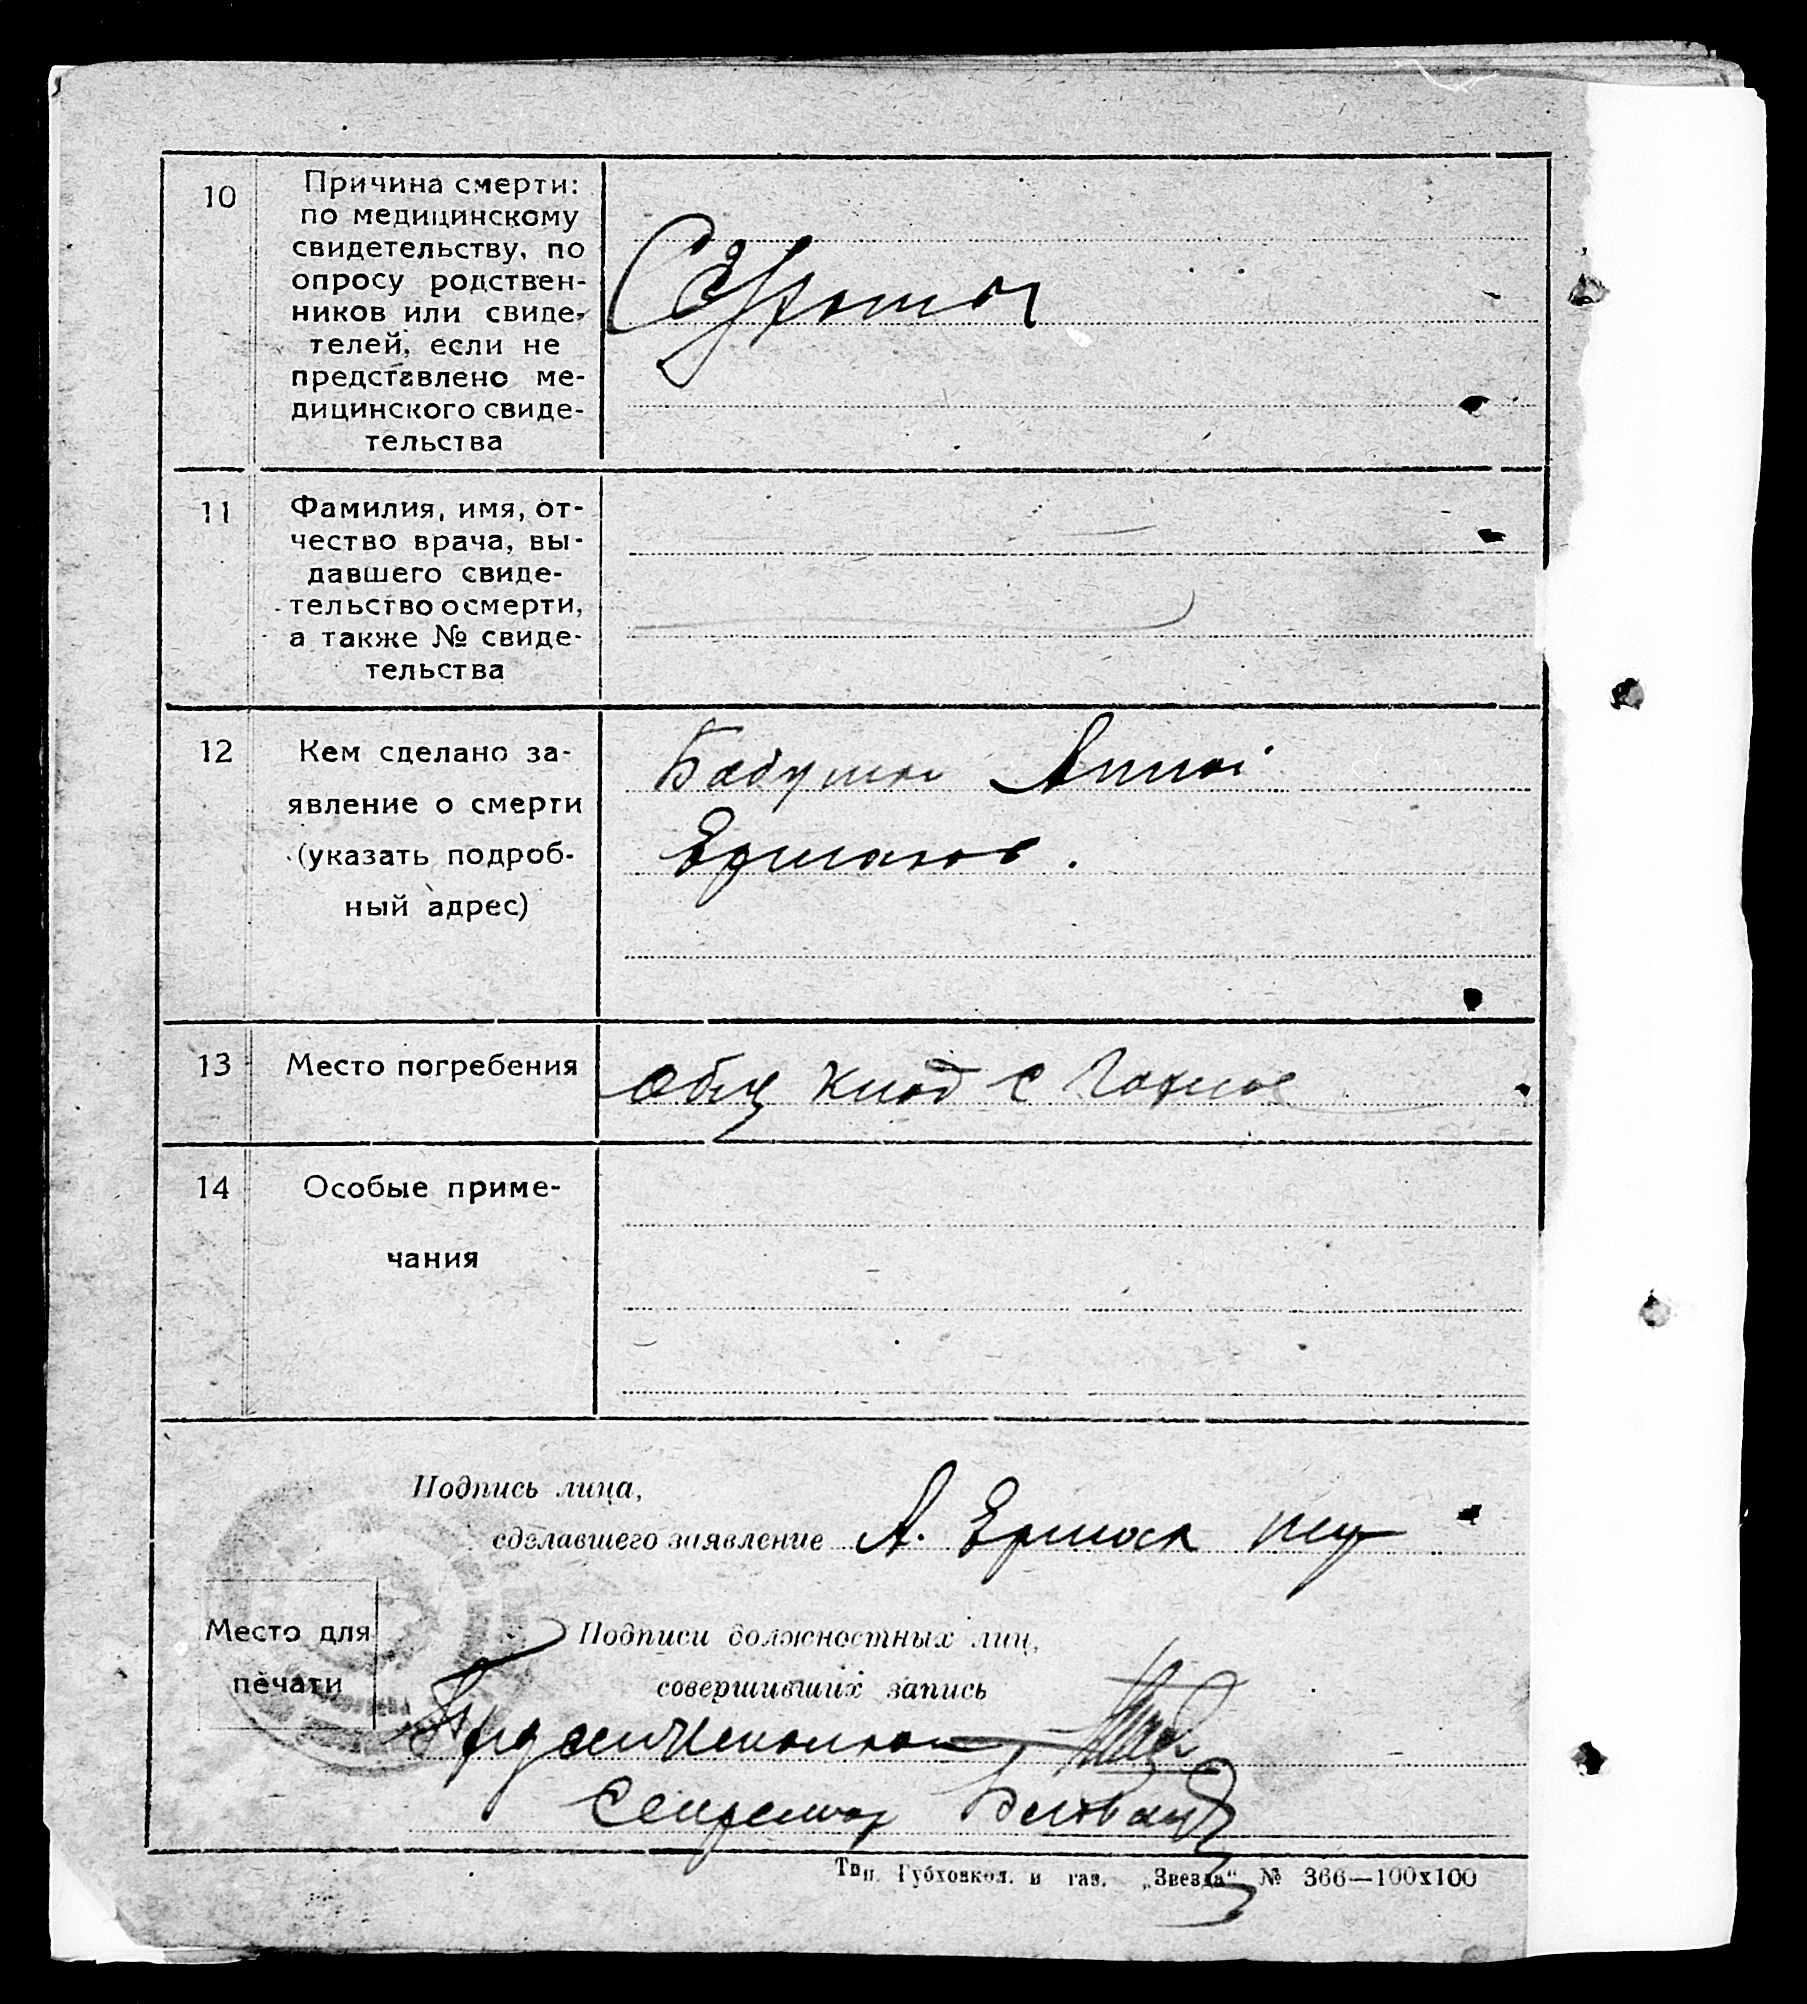 10
Причина смерти:
по медицинскому
свидетельству, по
опросу родствен-
ников или свиде-
телей, если не
представлено ме-
дицинского свиде-
тельства
11
Фамилия, имя, от-
чество врача, вы-
давшего свиде-
тельство о смерти,
а также № свиде-
тельства
12
Кем сделано за-
явление о смерти
(указать подроб-
ный адрес)
Анной
13
Место погребения
Общ клад с
14
Особые приме-
чания
Подпись лица,
сделавшего заявление А.
Место для
печати
Подписи должностных лиц,
совершивших запись
Секретар
Тип. Губховкол. и газ. „Звезда“ № 366—100х100